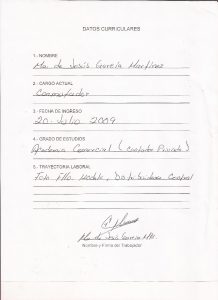 DATOS CURRICULARES
1.- NOMBRE
Ma. de Jesús García Martínez
2.- CARGO ACTUAL
Conmutador
3.- FECHA DE INGRESO
20. Julio 2009
4.- GRADO DE ESTUDIOS
Academia Comercial (Contador Privado)
5.- TRAYECTORIA LABORAL
Foto Modelo, Distribuidora
Ma. de Jesús García Mtz.
Nombre y Firma del Trabajador